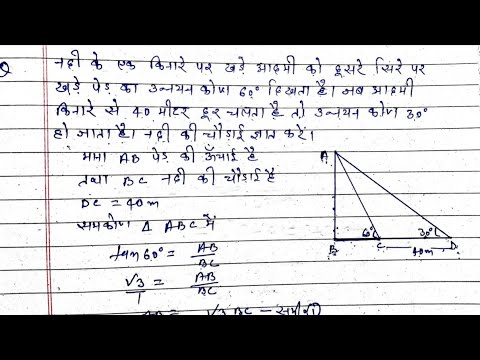 Q नदी के एक किनारे पर खड़े आदमी को दूसरे सिरे पर
खड़े पेड़ का उन्नयन कोण 60° दिखता है। जब आदमी
किनारे से 40 मीटर दूर चलता है तो उन्नयन कोण 30°
हो जाता है। नदी की चौड़ाई ज्ञात करें।
माना AB पेड़ की ऊँचाई है
तथा BC नदी की चौड़ाई है
DC = 40m
समकोण Δ ABC में
tan60° = AB/BC
√3/1 = AB/BC
AB = √3 BC – समी०①
A
B
60°
C
40m
30°
D